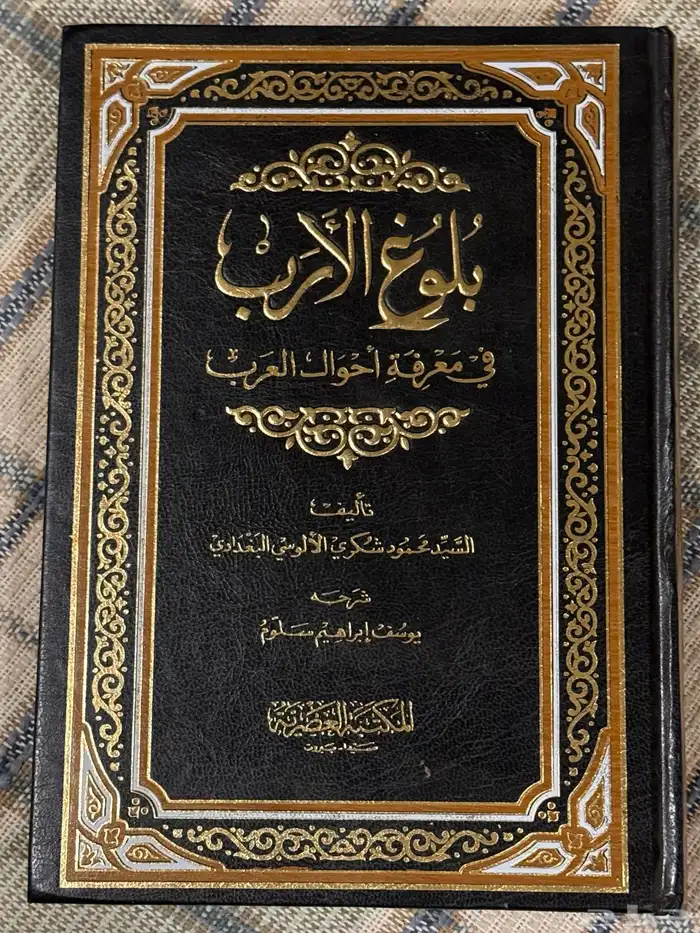 بُلُوغُ الأَرَبِ
فِي مَعْرِفَةِ أَحْوَالِ العَرَبِ
تأليف
السَّيِّد محمود شكري الألوسي البغدادي
شرحه
يوسف إبراهيم سلوم
المكتبة العصرية
صيدا - بيروت